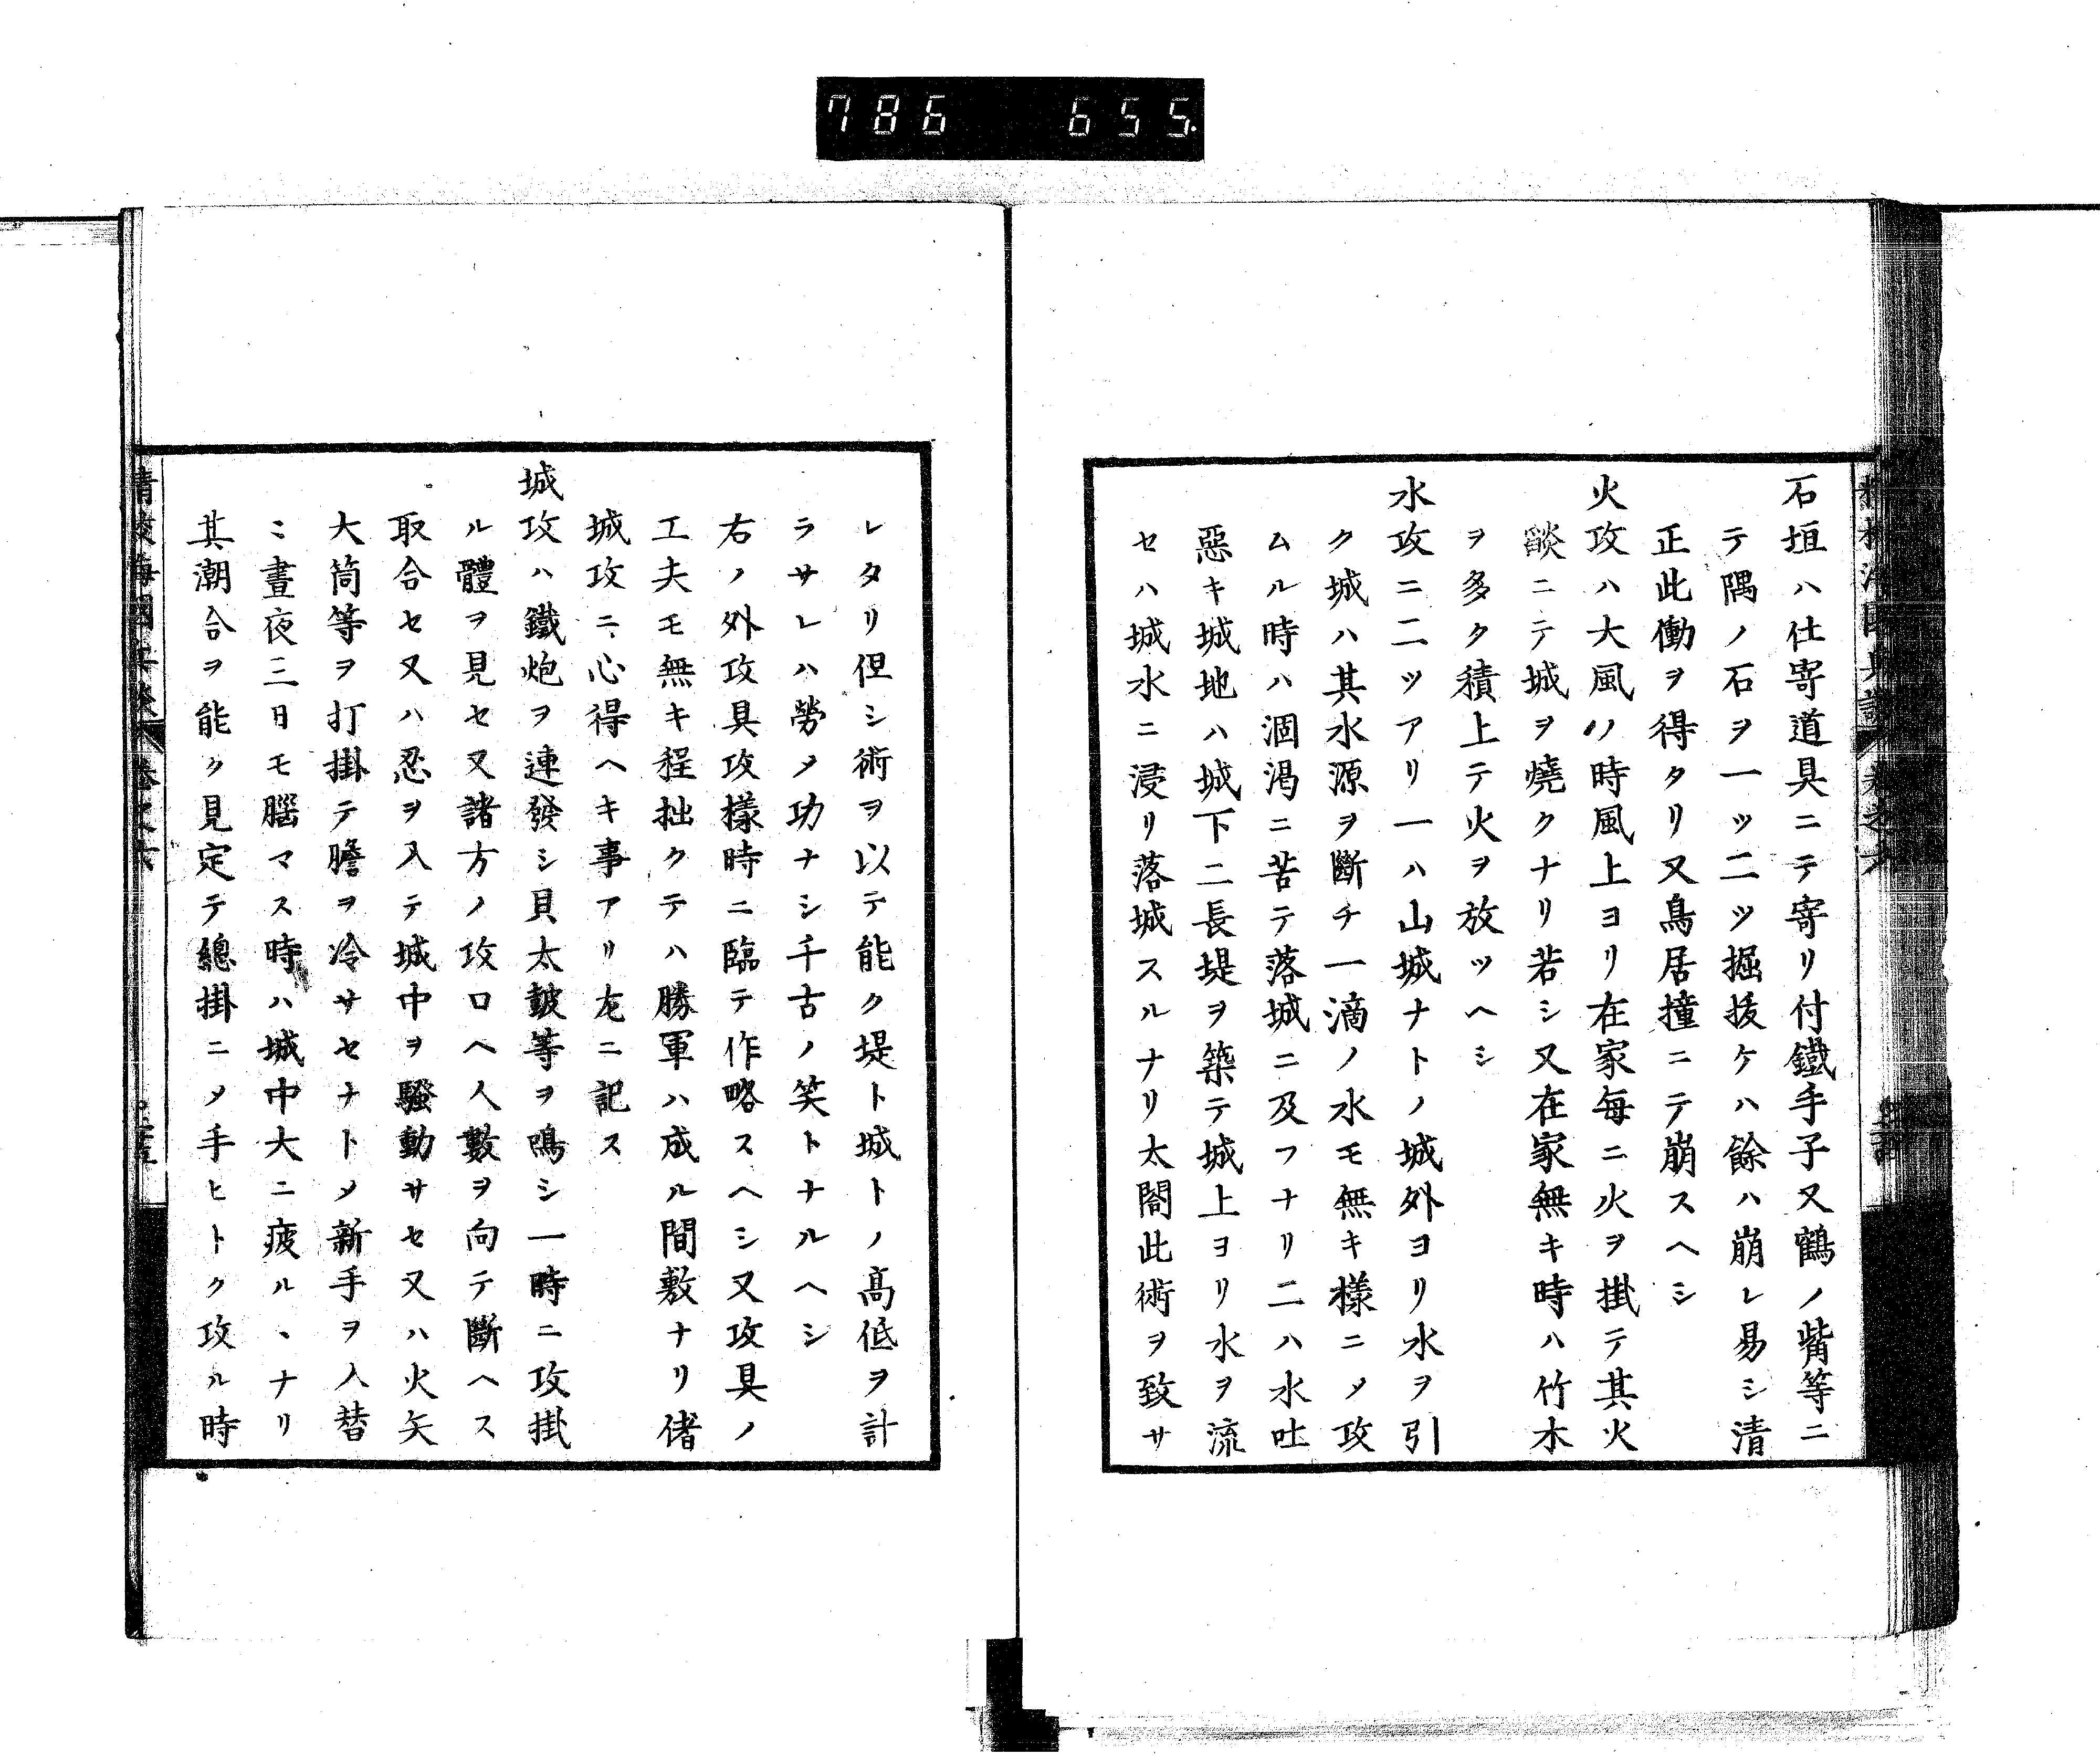 786 655.
石垣ハ仕寄道具ニテ寄リ付鐵手子又鶴ノ觜等ニ
テ隅ノ石ヲ一ッ二ッ掘拔ケハ餘ハ崩レ易シ清
正此働ヲ得タリ又鳥居撞ニテ崩スヘシ
火攻ハ大風ノ時風上ヨリ在家每ニ火ヲ掛テ其火
燄ニテ城ヲ燒クナリ若シ又在家無キ時ハ竹木
ヲ多ク積上テ火ヲ放ツヘシ
水攻ニ二ツアリ一ハ山城ナトノ城外ヨリ水ヲ引
ク城ハ其水源ヲ斷チ一滴ノ水モ無キ樣ニメ攻
ムル時ハ涸渇ニ苦テ落城ニ及フナリ二ハ水吐
惡キ城地ハ城下ニ長堤ヲ築テ城上ヨリ水ヲ流
セハ城水ニ浸リ落城スルナリ太閤此術ヲ致サ
レタリ但シ術ヲ以テ能ク堤ト城トノ高低ヲ計
ラサレハ勞メ功ナシ千古ノ笑トナルヘシ
右ノ外攻具攻樣時ニ臨テ作略スヘシ又攻具ノ
工夫モ無キ程拙クテハ勝軍ハ成ル間敷ナリ偖
城攻ニ心得ヘキ事アリ左ニ記ス
城攻ハ鐵炮ヲ連發シ貝太皷等ヲ鳴シ一時ニ攻掛
ル體ヲ見セ又諸方ノ攻口ヘ人數ヲ向テ斷ヘス
取合セ又ハ忍ヲ入テ城中ヲ騷動サセ又ハ火矢
大筒等ヲ打掛テ膽ヲ冷サセナトメ新手ヲ入替
ニ晝夜三日モ腦マス時ハ城中大ニ疲ルヽナリ
其潮合ヲ能ク見定テ總掛ニメ手ヒトク攻ル時
精校海國兵談 卷之六